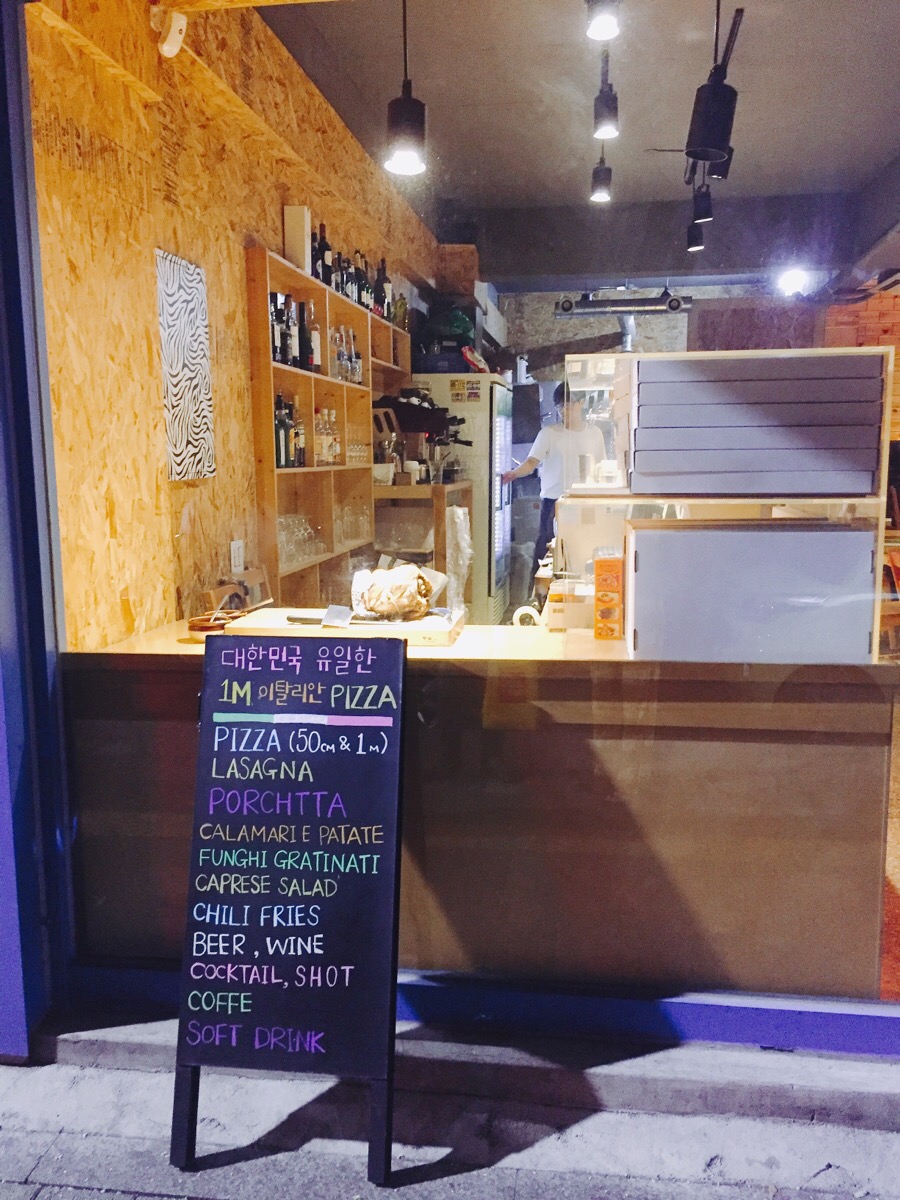 대한민국 유일한
1M 이탈리안 PIZZA
PIZZA (50CM & 1M)
LASAGNA
PORCHTTA
CALAMARI E PATATE
FUNGHI GRATINATI
CAPRESE SALAD
CHILI FRIES
BEER, WINE
COCKTAIL, SHOT
COFFE
SOFT DRINK